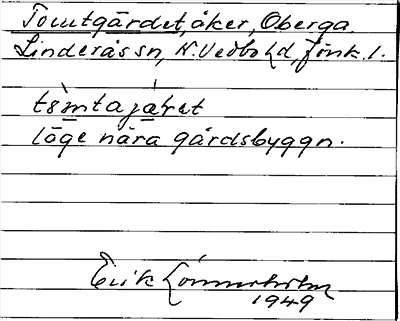 Tomtgärdet, åker, Oberga.
Linderås sn, N. Vedbo hd, Jönk. l.
tòmtajá̱ret
läge nära gårdsbyggn.
Erik Lönnerholm
1949